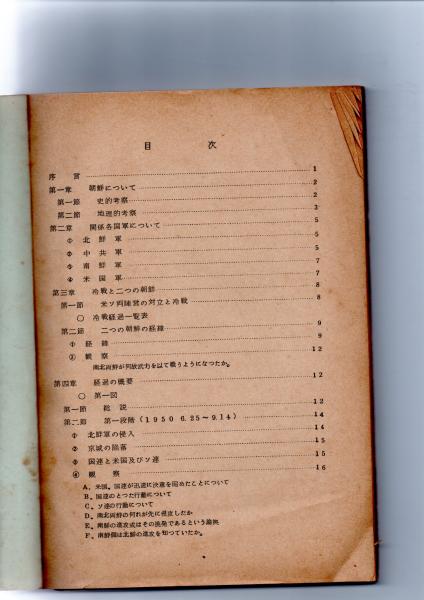 目 次
序 言 1
第一章 朝鮮について 2
第一節 史的考察 2
第二節 地理的考察 3
第二章 関係各国軍について 5
① 北鮮軍 5
② 中共軍 5
③ 南鮮軍 7
④ 米国軍 7
第三章 冷戦と二つの朝鮮 8
第一節 米ソ両陣営の対立と冷戦 8
○ 冷戦経過一覧表
第二節 二つの朝鮮の経緯 9
① 経緯 9
② 観察 12
南北両鮮が何故武力を以て戦うようになつたか。
第四章 経過の概要 12
○ 第一図
第一節 総説 12
第二節 第一段階(1950 6.25~9.14) 14
① 北鮮軍の侵入 14
② 京城の陥落 15
③ 国連と米国及びソ連 15
④ 観察 16
A、米国、国連が迅速に決意を固めたことについて
B、国連のとつた行動について
C、ソ連の行動について
D、南北両鮮の何れが先に侵攻したか
E、南鮮の進攻式はその挑発であるという論拠
F、南鮮側は北鮮の進攻を知つていたか。